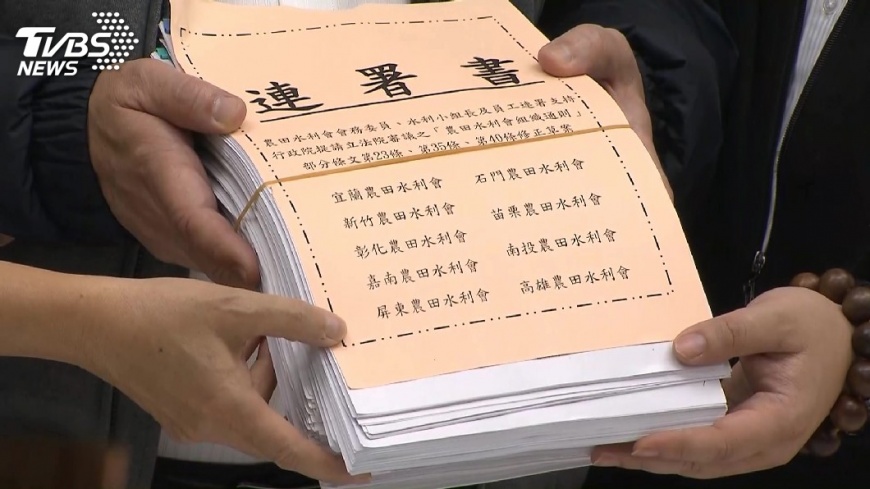 TVBS
NEWS
連署書
農田水利會會務委員、水利小組長及員工連署支持
行政院提請立法院審議之「農田水利會組織通則」
部分條文第23條、第35條、第40條修正草案
宜蘭農田水利會 石門農田水利會
新竹農田水利會 苗栗農田水利會
彰化農田水利會 南投農田水利會
嘉南農田水利會 高雄農田水利會
屏東農田水利會